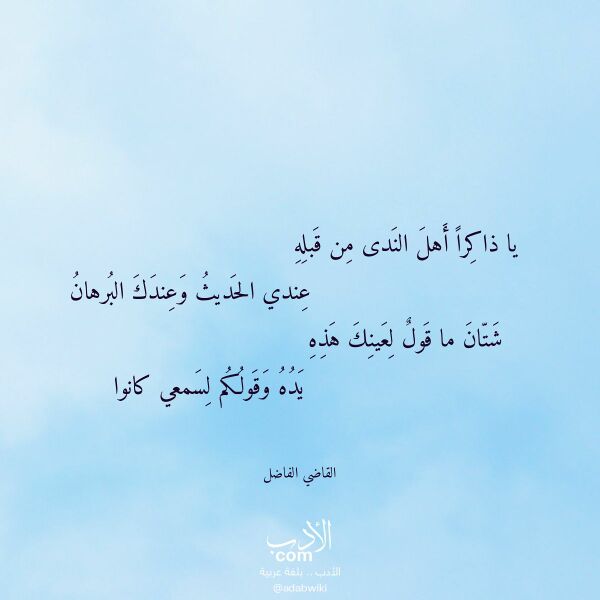 يا ذاكِراً أَهلَ النَدى مِن قَبلِهِ
عِندي الحَديثُ وَعِندَكَ البُرهانُ
شَتّانَ ما قَولٌ لِعَينِكَ هَذِهِ
يَدُهُ وَقَولُكُم لِسَمعي كانوا
القاضي الفاضل
الأدب
com
الأدب .. بلغة عربية
@adabwiki